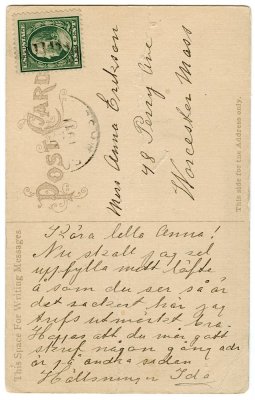 POST CARD
Miss Anna Erikson
48 Perry Ave
Worcester Mass
This side for the Address only.
This Space For Writing Messages
Kära lella Anna!
Nu skall jag sel
uppfylla mitt löfte
å som du ser så är
det vackert här jag
trifs utmärkt bra.
Hoppas att du mår gått
skref någon gång adr
är på andra sidan
Hällsningar Ida